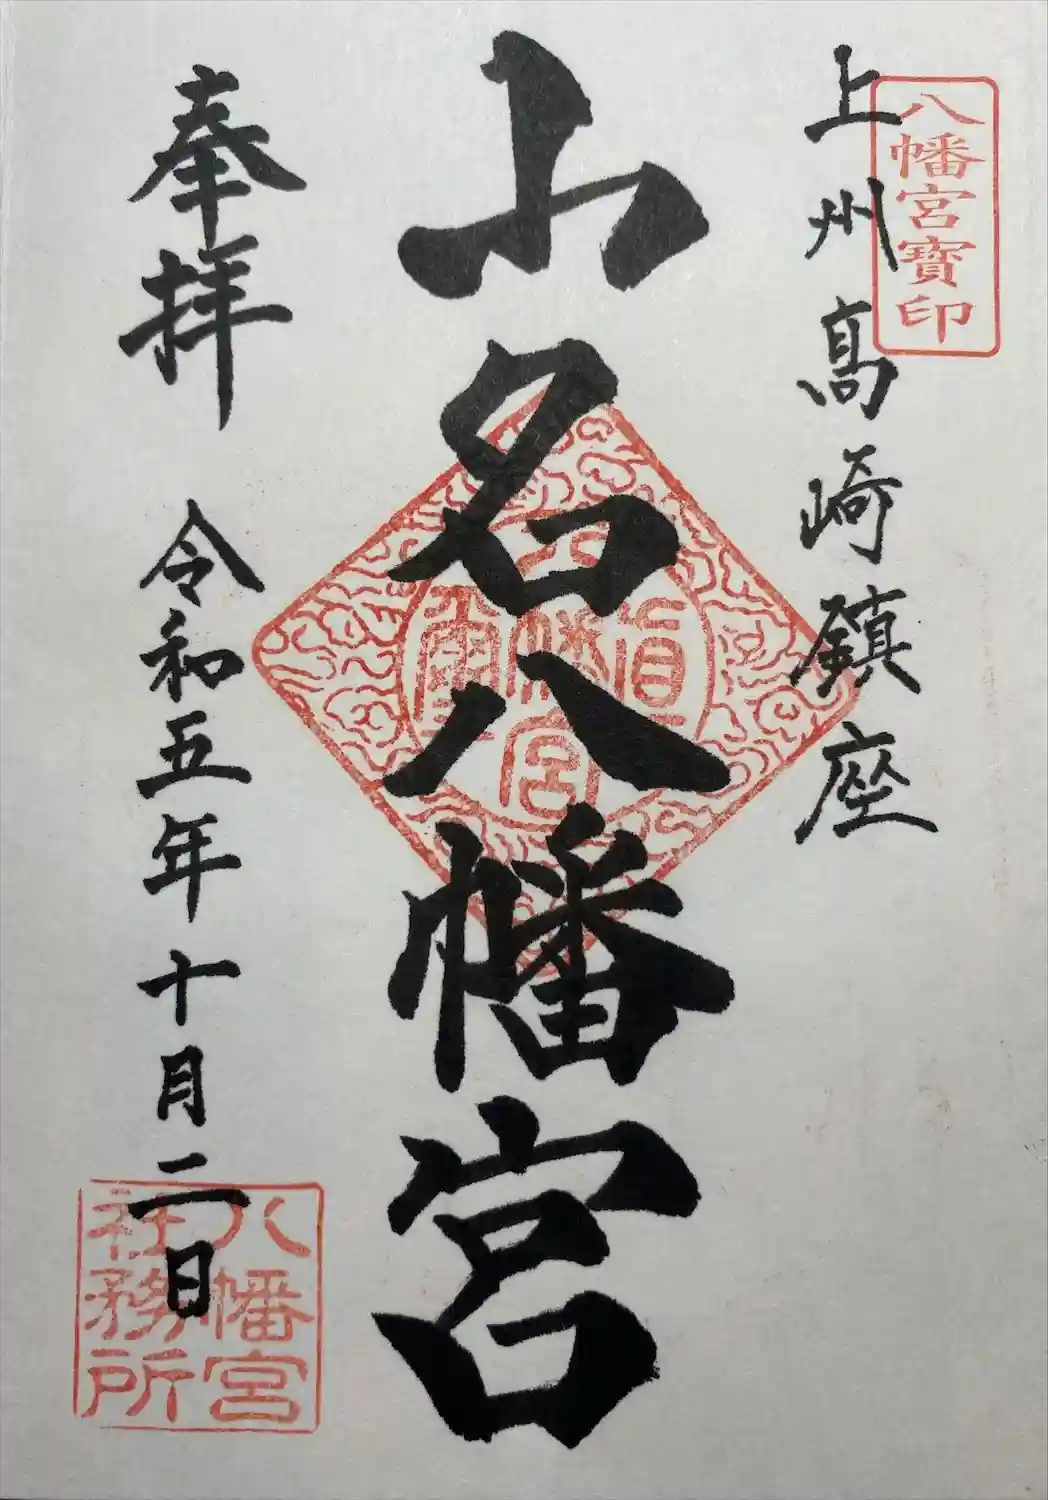 八幡宮寶印
上州高崎鎮座
山名八幡宮
八幡宮
奉拝
令和五年十月二日
八幡宮
社務所